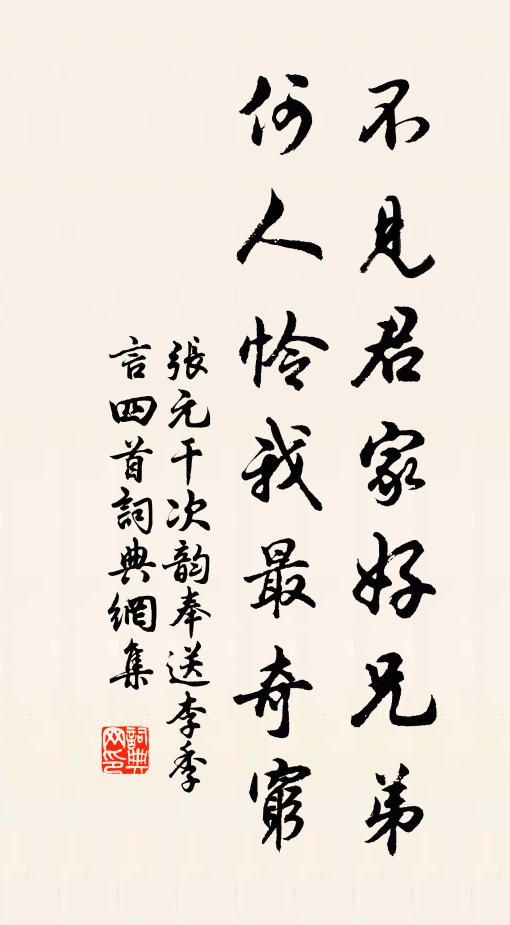 不見君家好兄弟
何人憐我最奇窮
張元干次韵奉送李季
言四首詞典網集
詞典
网印